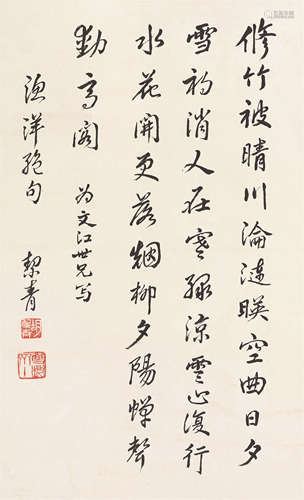 修竹被晴川淪漣暎空曲日夕
雪初消人在寒緑涼雲止復行
水花開更落烟柳夕陽蟬聲
動高閣 为文江世兄写
漁洋絶句 絜青